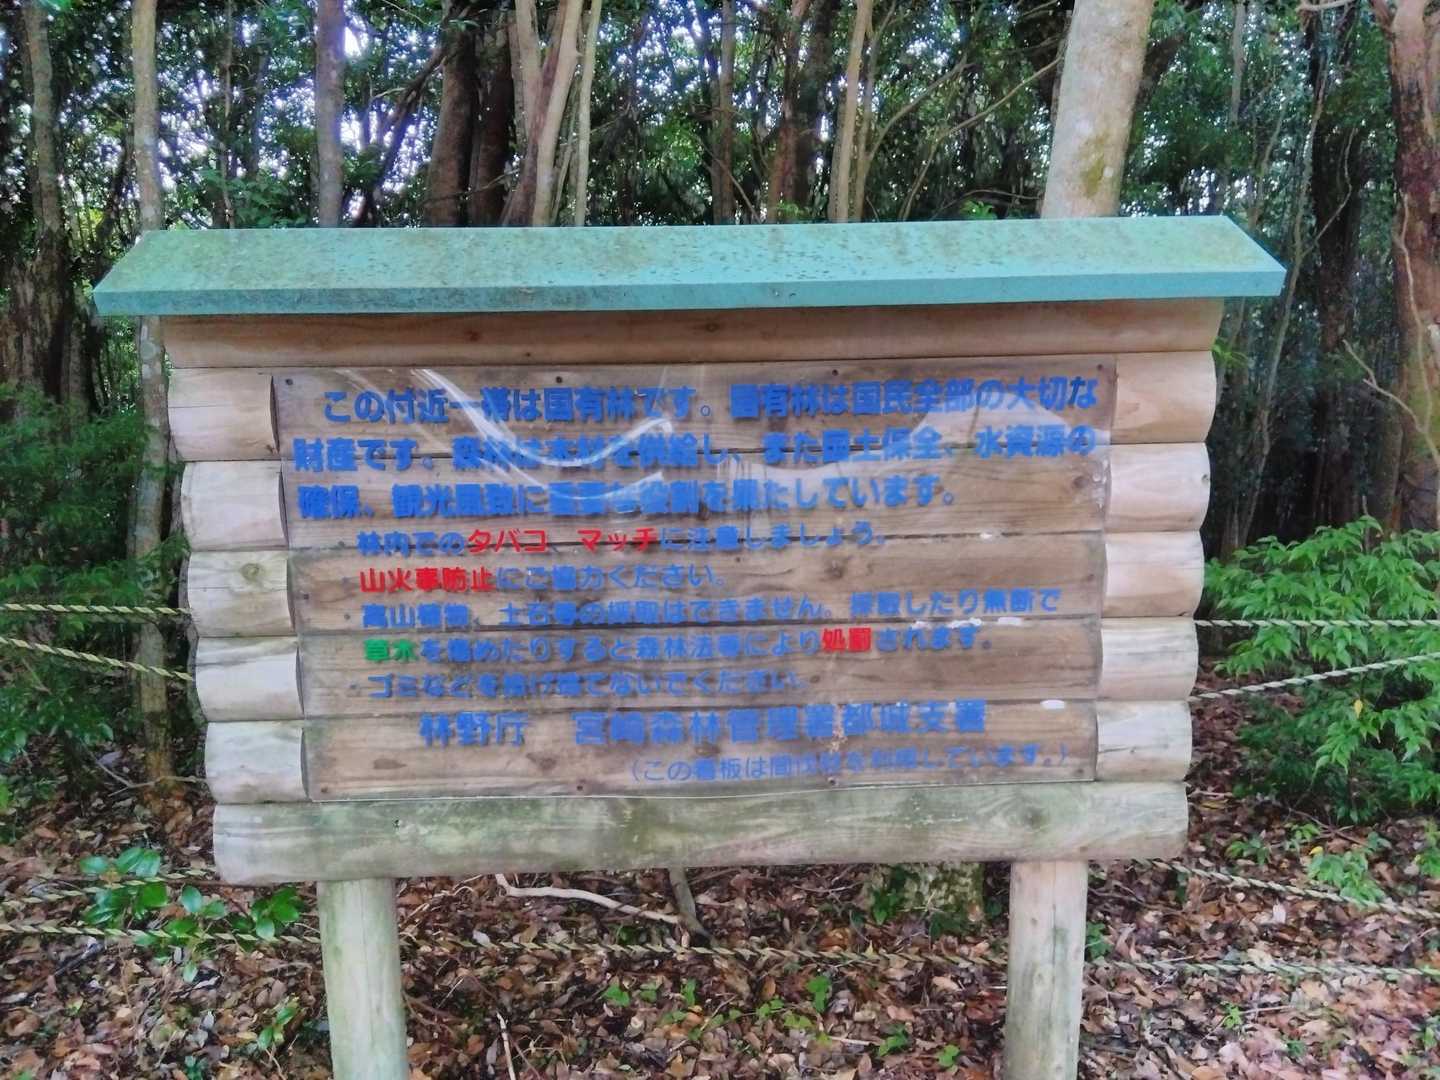 この付近一帯は国有林です。国有林は国民全部の大切な
財産です。森林は木材を供給し、また国土保全、水資源の
確保、観光風致に重要な役割を果たしています。
・林内でのタバコ、マッチに注意しましょう。
・山火事防止にご協力ください。
・高山植物、土石等の採取はできません。採取したり無断で
草木を傷めたりすると森林法等により処罰されます。
・ゴミなどを投げ捨てないでください。
林野庁 宮崎森林管理署都城支署
(この看板は間伐材を利用しています。)